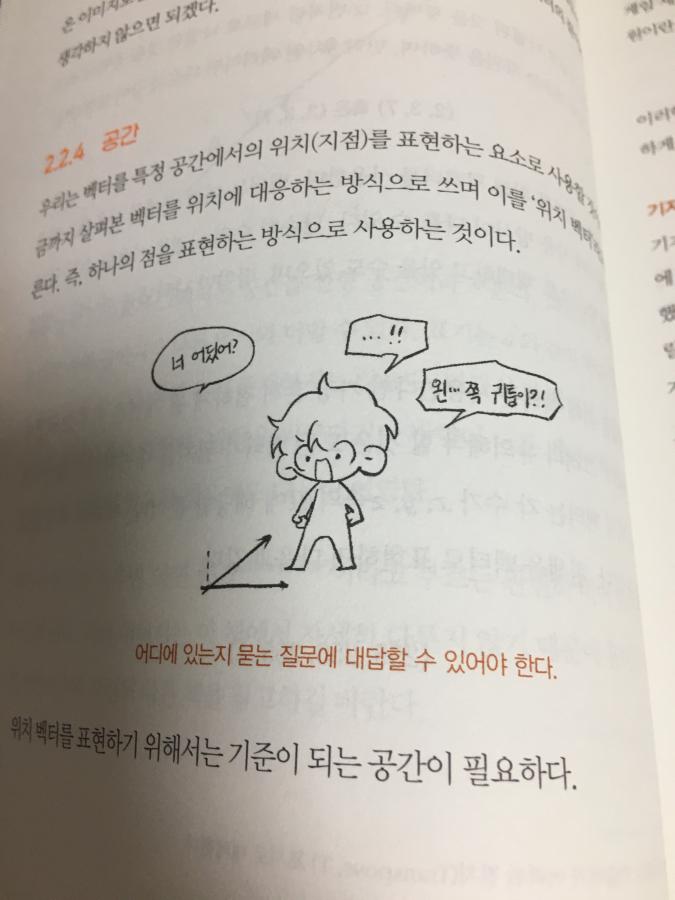 온 이미지로
생각하지 않으면 되겠다.
2.2.4 공간
우리는 벡터를 특정 공간에서의 위치(지점)를 표현하는 요소로 사용할
금까지 살펴본 벡터를 위치에 대응하는 방식으로 쓰며 이를 '위치 벡터
른다. 즉, 하나의 점을 표현하는 방식으로 사용하는 것이다.
너 어딨어?
...!!
왼... 쪽 귀퉁이?!
어디에 있는지 묻는 질문에 대답할 수 있어야 한다.
위치 벡터를 표현하기 위해서는 기준이 되는 공간이 필요하다.
게임
원이란
이러한
하게
기저
기
에
했